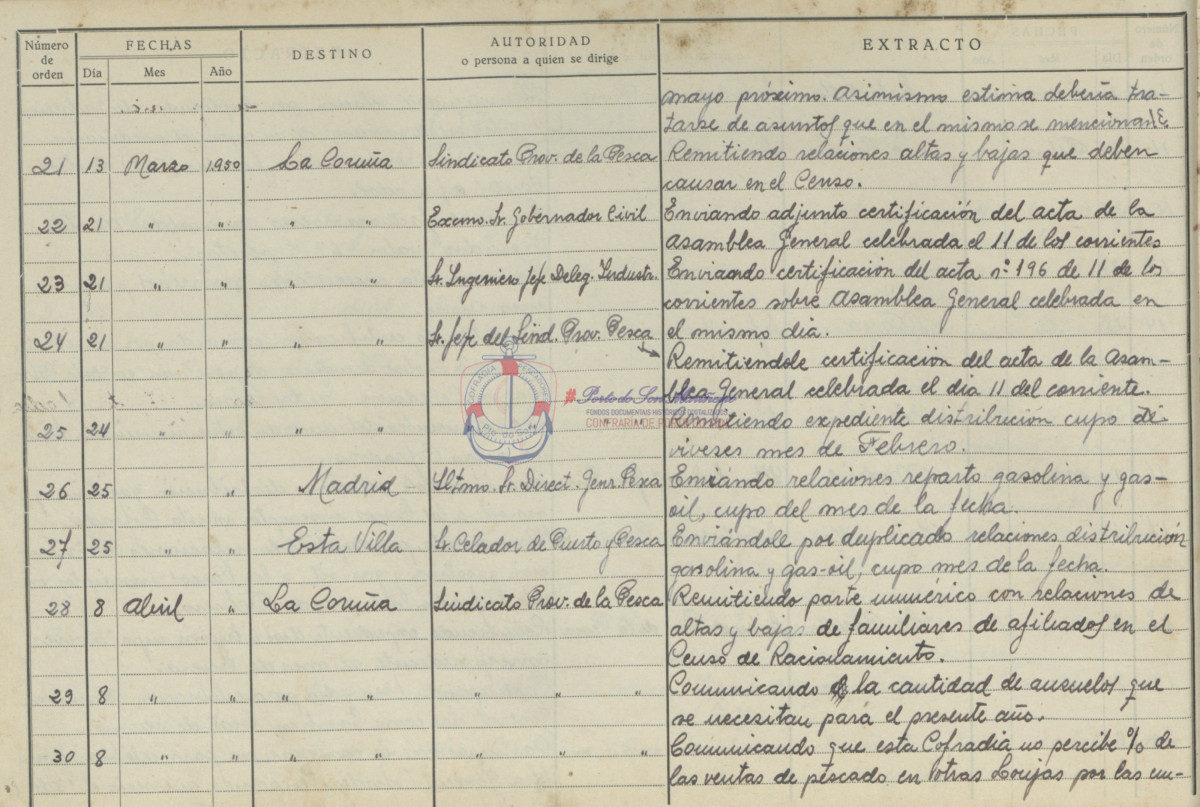 Número de orden
FECHAS
Día Mes Año
DESTINO
AUTORIDAD
o persona a quien se dirige
EXTRACTO
mayo próximo. Asimismo estima debería tra-
tarse de asuntos que en el mismo se mencionan
21 13 Marzo 1.950 La Coruña Sindicato Prov. de la Pesca Remitiendo relaciones altas y bajas que deben
causar en el Censo.
22 21 " " " " Excmo. Sr. Gobernador Civil Enviando adjunto certificación del acta de la
Asamblea General celebrada el 11 de los corrientes
23 21 " " " " Sr. Ingeniero Jefe Deleg. Industr. Enviando certificación del acta nº 196 de 11 de los
corrientes sobre Asamblea General celebrada en
el mismo dia.
24 21 " " " " Sr. Jefe del Sind. Prov. Pesca
Remitiendole certificación del acta de la Asam-
blea General celebrada el dia 11 del corriente.
25 24 " " " " " " Remitiendo expediente distribución cupo de
viveres mes de Febrero.
26 25 " " Madrid Iltmo. Sr. Direct. Genr. Pesca Enviando relaciones reparto gasolina y gas-
oil, cupo del mes de la fecha.
27 25 " " Esta Villa Sr. Celador de Puerto y Pesca Enviándole por duplicado relaciones distribución
gasolina y gas-oil, cupo mes de la fecha.
28 8 Abril " La Coruña Sindicato Prov. de la Pesca Remitiendo parte numérico con relaciones de
altas y bajas de familiares de afiliados en el
Censo de Racionamiento.
29 8 " " " " " " " Comunicando la cantidad de anzuelos que
se necesitan para el presente año.
30 8 " " " " " " " Comunicando que esta Cofradia no percibe % de
las ventas de pescado en otras Lonjas por las em-
COFRADIA PESCADORES
Pto. do Son
#Porto do Son
FONDOS DOCUMENTAIS HISTÓRICOS DIXITALIZADOS
CONFRARÍA DE